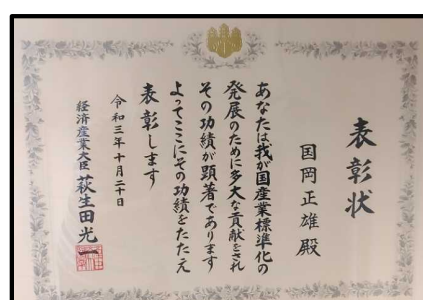 表彰状
国岡正雄殿
あなたは我が国産業標準化の
発展のために多大な貢献をされ
その功績が顕著であります
よってここにその功績をたたえ
表彰します
令和三年十月二十日
経済産業大臣 萩生田光一